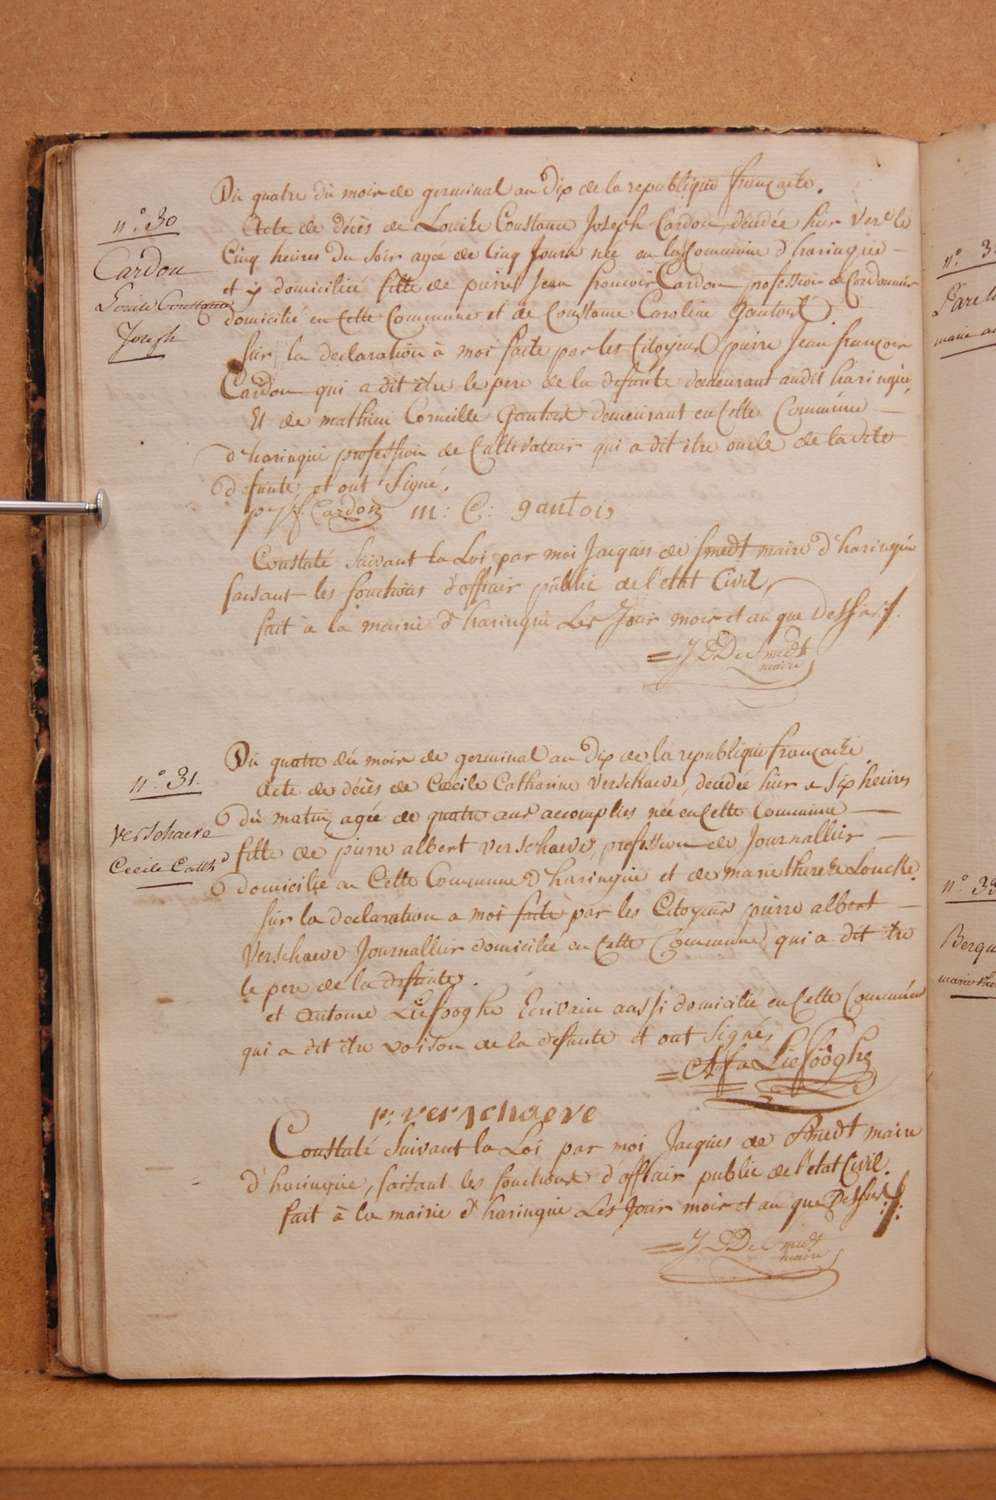 n.° 30
Cardon
Louise Constance
Joseph
Du quatre du mois de germinal an dix de la republique française.
Acte de décès de Louise Constance Joseph Cardon, décédée hier vers le
Cinq heures du soir agée de Cinq Jours née en la Commune d'haringhe
et y domiciliée fille de pierre Jean françois Cardon profession de Cordonnier
domicilié en Cette Commune et de Constance Caroline Gantois
Sur la declaration à moi faite par les Citoyens pierre Jean françois
Cardon qui a dit être le pere de la defunte demeurant audit haringhe,
Et de mathieu Corneille Gantois demeurant en Cette Commune
d'haringue profession de Cultivateur qui a dit être oncle de la dite
defunte et ont Signé.
p j f Cardon m: C: gantois
Constaté Suivant la Loi par moi Jacques de Smedt maire d'haringue
faisant les fonctions d'officier public de l'etat Civil,
fait à la mairie d'haringue Les Jour mois et an que Dessus.
J D De Smedt
maire
n.° 31.
Verschaeve
Cecile Cath.
Du quatre du mois de germinal an Dix de la republique française.
Acte de décès de Cecile Catharine Verschaeve, décédée hier a Six heures
du matin, agée de quatre ans accomplis née en Cette Commune
fille de pierre albert verschaeve, profession de Journallier
domicilié en Cette Commune d'haringue et de marie therese Loucke.
Sur la declaration a moi faite par les Citoyens pierre albert
Verschaeve Journallier domicilié en Cette Commune, qui a dit être
le pere de la defunte.
et Antoine Liefooghe Ecrivin aussi domicilié en Cette Commune
qui a dit être voison de la defunte et ont Signé,
Liefooghe
p: verschaeve
Constaté Suivant la Loi par moi Jacques de Smedt maire
d'haringue, faisant les fonctions d'officier public de l'etat Civil.
fait à la mairie d'haringue Les Jour mois et an que Dessus
J D De Smedt
maire
n.° 3
marie
n.° 33
Berque
marie the